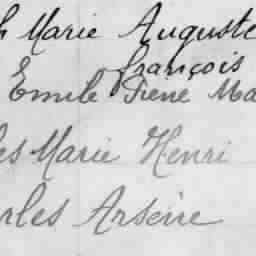 h Marie Auguste
françois
Emile Irene Ma
les Marie Henri
rles Arsène